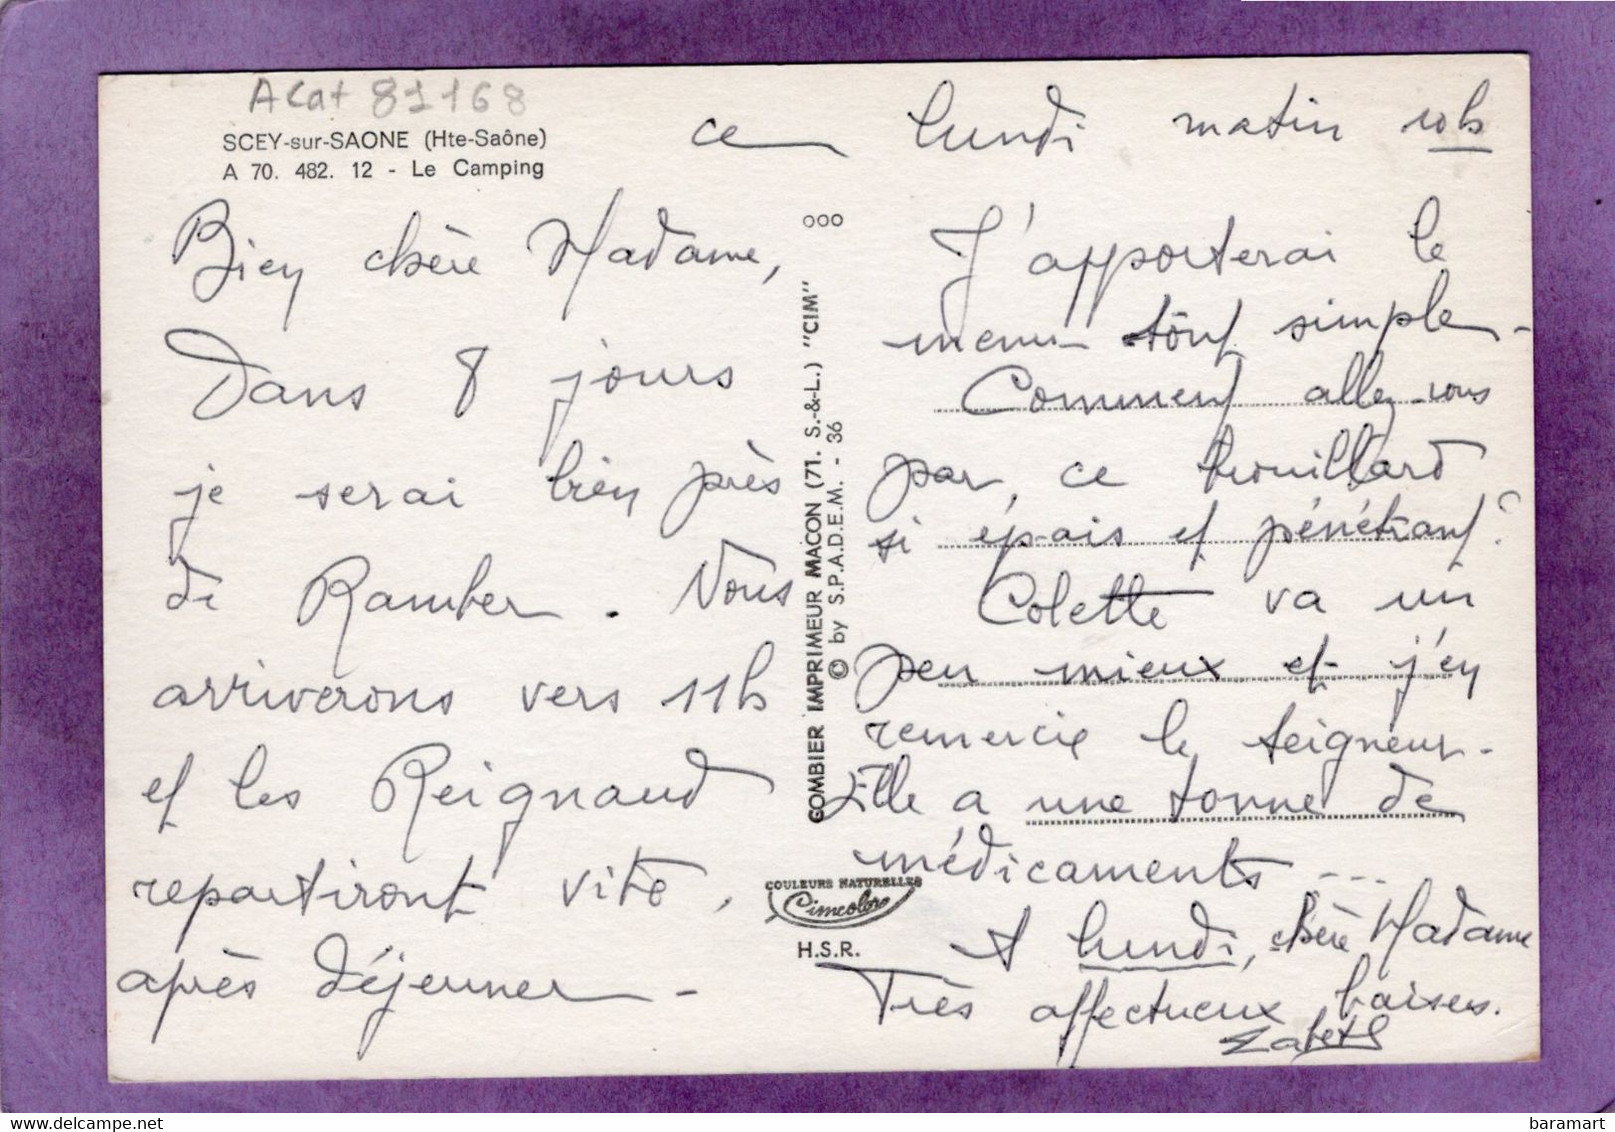 ACat 81168
SCEY-sur-SAONE (Hte-Saône)
A 70. 482. 12 - Le Camping
ce lundi matin 10h
Bien chère Madame,
Dans 8 jours
je serai bien près
de Ramber. Nous
arriverons vers 11h
et les Reignaud
repartiront vite,
après déjeuner -
ooo
GOMBIER IMPRIMEUR MACON (71. S.-&-L.) "CIM"
© by S.P.A.D.E.M. - 36
COULEURS NATURELLES
Cimcolor
H.S.R.
J'apporterai le
menu tout simple -
Comment allez-vous
par ce brouillard
si épais et pénétrant?
Colette va un
peu mieux et j'en
remercie le Seigneur -
Elle a une tonne de
médicaments ...
A lundi, chère Madame
Très affectueux baisers.
baramart